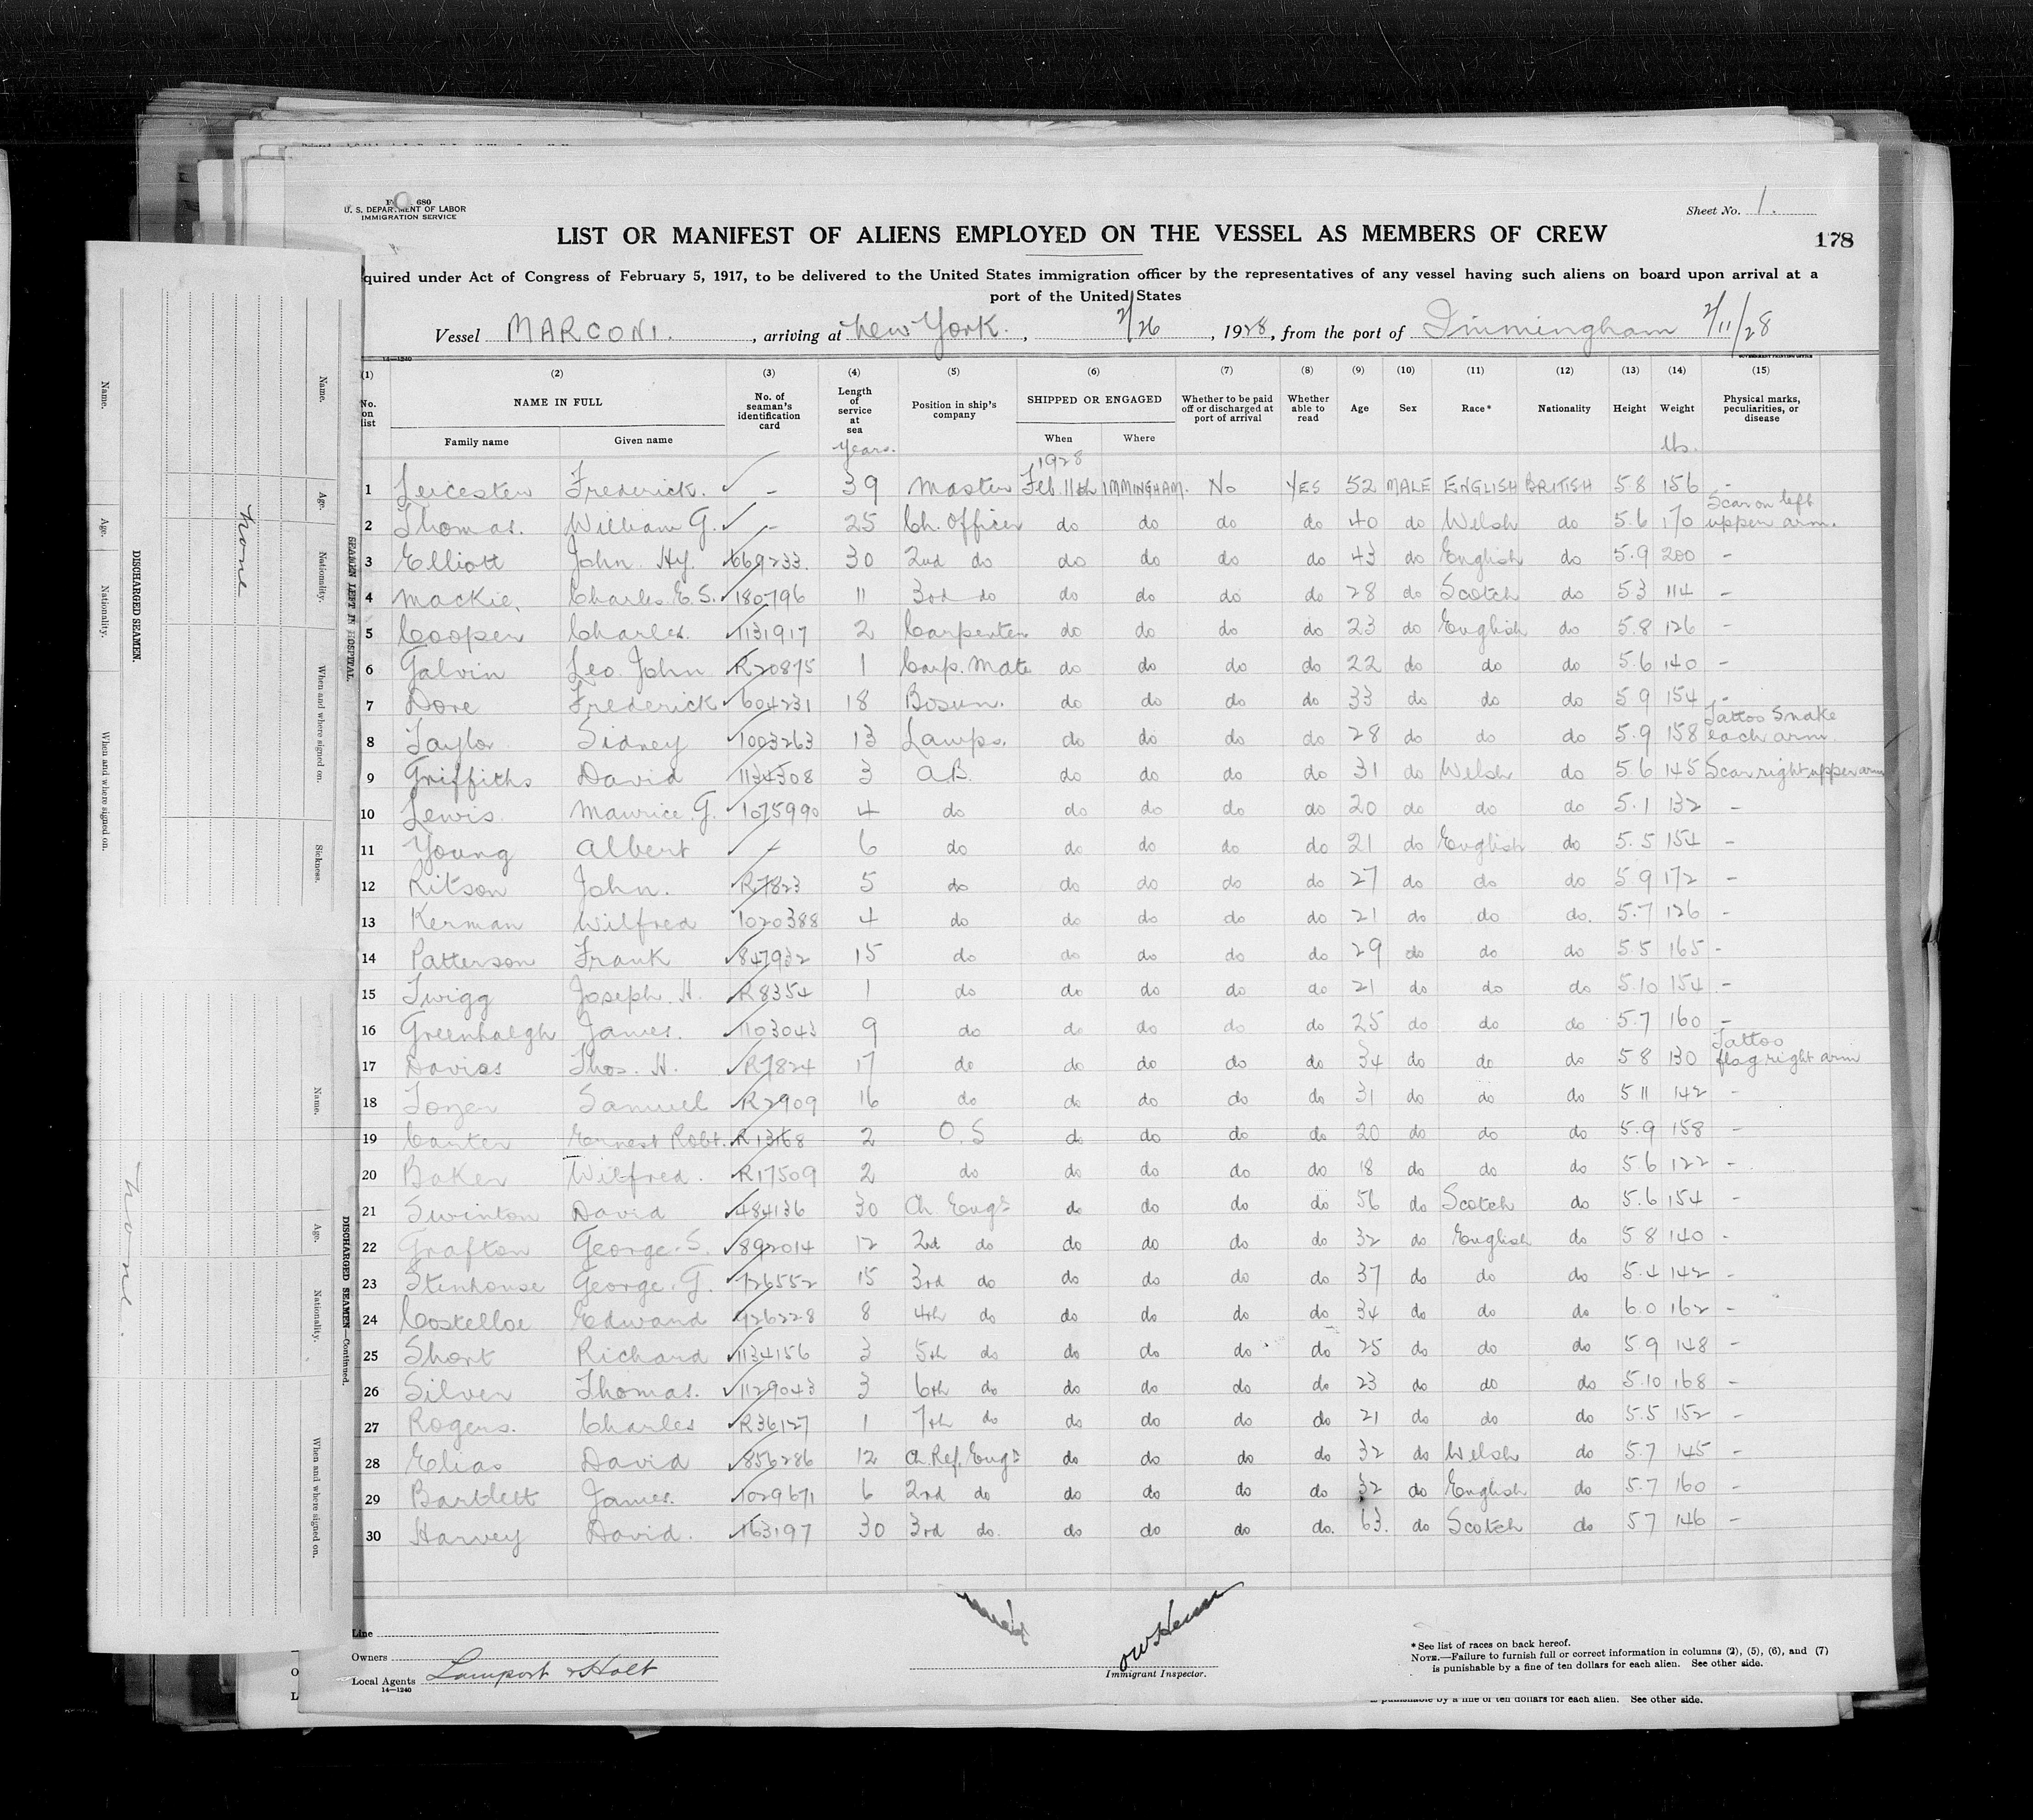 F 680
U. S. DEPARTMENT OF LABOR
IMMIGRATION SERVICE
Sheet No. 1.
LIST OR MANIFEST OF ALIENS EMPLOYED ON THE VESSEL AS MEMBERS OF CREW
178
quired under Act of Congress of February 5, 1917, to be delivered to the United States immigration officer by the representatives of any vessel having such aliens on board upon arrival at a
port of the United States
Vessel MARCONI. , arriving at New York. , 2/26 , 1928, from the port of Immingham 2/11/28
14—1240 GOVERNMENT PRINTING OFFICE
(1) (2) (3) (4) (5) (6) (7) (8) (9) (10) (11) (12) (13) (14) (15)
No. on list NAME IN FULL No. of seaman's identification card Length of service at sea Position in ship's company SHIPPED OR ENGAGED Whether to be paid off or discharged at port of arrival Whether able to read Age Sex Race* Nationality Height Weight Physical marks, peculiarities, or disease
Family name Given name Years. When Where lbs.
1928
1 Leicester Frederick. – 39 Master Feb 11th IMMINGHAM. No YES 52 MALE ENGLISH BRITISH 5 8 156 –
2 Thomas. William G. – 25 Ch. Officer do do do do 40 do Welsh do 5.6 170 Scar on left upper arm.
3 Elliott John Hy. 669233. 30 2nd do do do do do 43 do English do 5.9 200 –
4 Mackie, Charles E. S. 180796 11 3rd do do do do do 28 do Scotch do 5.3 114 –
5 Cooper Charles. 1131917 2 Carpenter do do do do 23 do English do 5.8 126 –
6 Galvin Leo John R20875 1 Carp. Mate do do do do 22 do do do 5.6 140 –
7 Dore Frederick 604231 18 Bosun. do do do do 33 do do do 5 9 154 –
8 Taylor Sidney 1003263 13 Lamps. do do do do 28 do do do 5.9 158 Tattoo Snake each arm.
9 Griffiths David 1134308 3 A.B. do do do do 31 do Welsh do 5.6 145 Scar right upper arm
10 Lewis Maurice G. 1075990 4 do do do do do 20 do do do 5.1 132 –
11 Young Albert – 6 do do do do do 21 do English do 5.5 154 –
12 Ritson John. R7823 5 do do do do do 27 do do do 5 9 172 –
13 Kerman Wilfred 1020388 4 do do do do do 21 do do do. 5.7 126 –
14 Patterson Frank 847932 15 do do do do do 29 do do do 5.5 165 –
15 Twigg Joseph H. R8354 1 do do do do do 21 do do do 5.10 154 –
16 Greenhalgh James. 1103043 9 do do do do do 25 do do do 5.7 160 –
17 Davies Thos. H. R7824 17 do do do do do 34 do do do 5 8 130 Tattoo flag right arm
18 Tozer Samuel R2909 16 do do do do do 31 do do do 5 11 142 –
19 Carter Ernest Robt. R1368 2 O.S do do do do 20 do do do 5.9 158 –
20 Baker Wilfred. R17509 2 do do do do do 18 do do do 5.6 122 –
21 Swinton David 484136 30 Ch. Engr do do do do 56 do Scotch do 5.6 154 –
22 Grafton George. S. 892014 12 2nd do do do do do 32 do English do 5 8 140 -
23 Stenhouse George. G. 726552 15 3rd do do do do do 37 do do do 5.4 142 –
24 Costelloe Edward 926228 8 4th do do do do do 34 do do do 6.0 162 –
25 Short Richard 1134156 3 5th do do do do do 25 do do do 5 9 148 –
26 Silver Thomas. 1129043 3 6th do do do do do 23 do do do 5.10 168 –
27 Rogers. Charles R36127 1 7th do do do do do 21 do do do 5.5 152 –
28 Elias David 856286 12 Ch. Ref. Engr do do do do 32 do Welsh do 5.7 145 –
29 Bartlett James. 1029671 6 2nd do do do do do 32 do English do 5.7 160 –
30 Harvey David. 163197 30 3rd do. do do do do. 63. do Scotch do 5 7 146 –
Line
Owners
Local Agents Lamport & Holt
14—1240
Immigrant Inspector.
*See list of races on back hereof.
NOTE.—Failure to furnish full or correct information in columns (2), (5), (6), and (7)
is punishable by a fine of ten dollars for each alien. See other side.
is punishable by a fine of ten dollars for each alien. See other side.
SEAMEN LEFT IN HOSPITAL.
Name. Age. Nationality. When and where signed on. Sickness.
None
DISCHARGED SEAMEN.
Name. Age. Nationality. When and where signed on.
DISCHARGED SEAMEN—Continued.
Name. Age. Nationality. When and where signed on.
None.